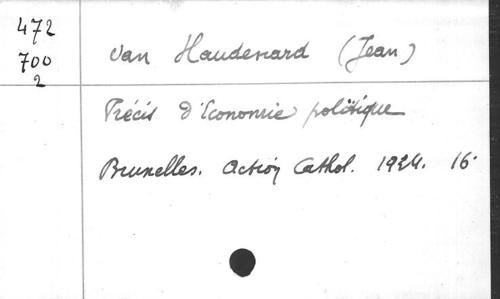 472
700
2
Van Haudenard (Jean)
Précis d'Economie politique
Bruxelles. Action Cathol. 1934. 16°